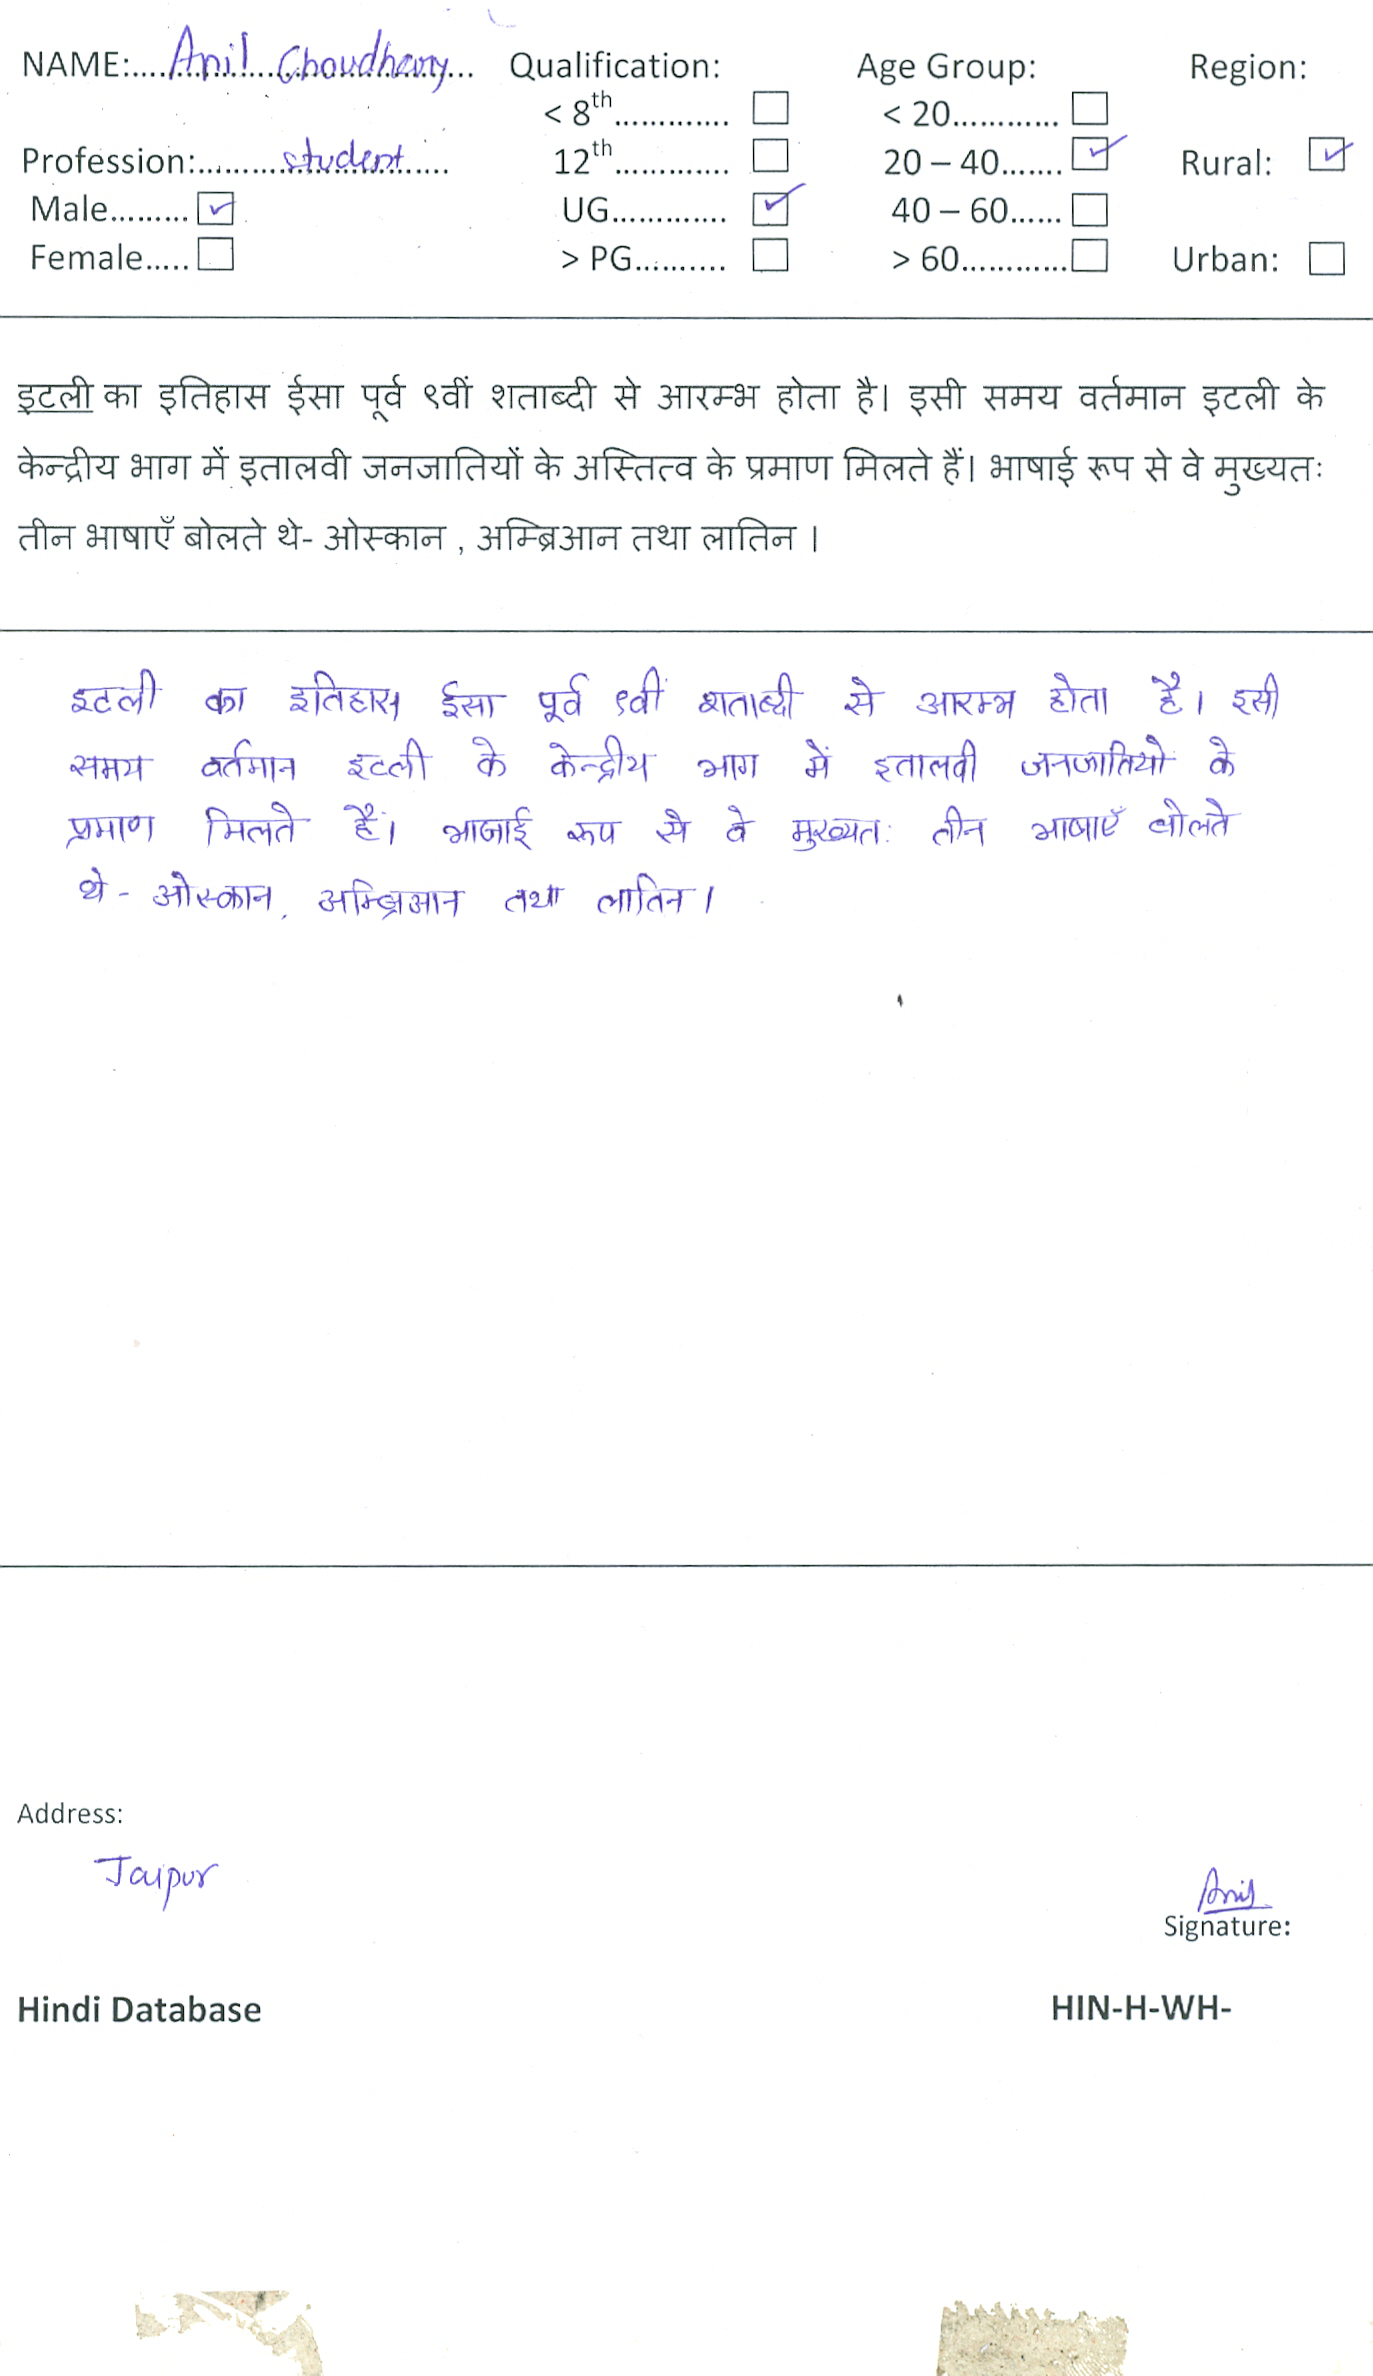 NAME:....Anil Choudhary... Qualification: Age Group: Region:
< 8th............. < 20............
Profession:.........student..... 12th ............. 20 – 40....... Rural:
Male......... UG............. 40 – 60......
Female..... > PG.......... > 60............ Urban:
इटली का इतिहास ईसा पूर्व ९वीं शताब्दी से आरम्भ होता है। इसी समय वर्तमान इटली के
केन्द्रीय भाग में इतालवी जनजातियों के अस्तित्व के प्रमाण मिलते हैं। भाषाई रूप से वे मुख्यतः
तीन भाषाएँ बोलते थे- ओस्कान , अम्ब्रिआन तथा लातिन ।
इटली का इतिहास ईसा पूर्व ९वीं शताब्दी से आरम्भ होता है। इसी
समय वर्तमान इटली के केन्द्रीय भाग में इतालवी जनजातियो के
प्रमाण मिलते हैं। भाषाई रूप से वे मुख्यतः तीन भाषाएँ बोलते
थे - ओस्कान, अम्ब्रिआन तथा लातिन।
Address:
Jaipur
Anil
Signature:
Hindi Database HIN-H-WH-